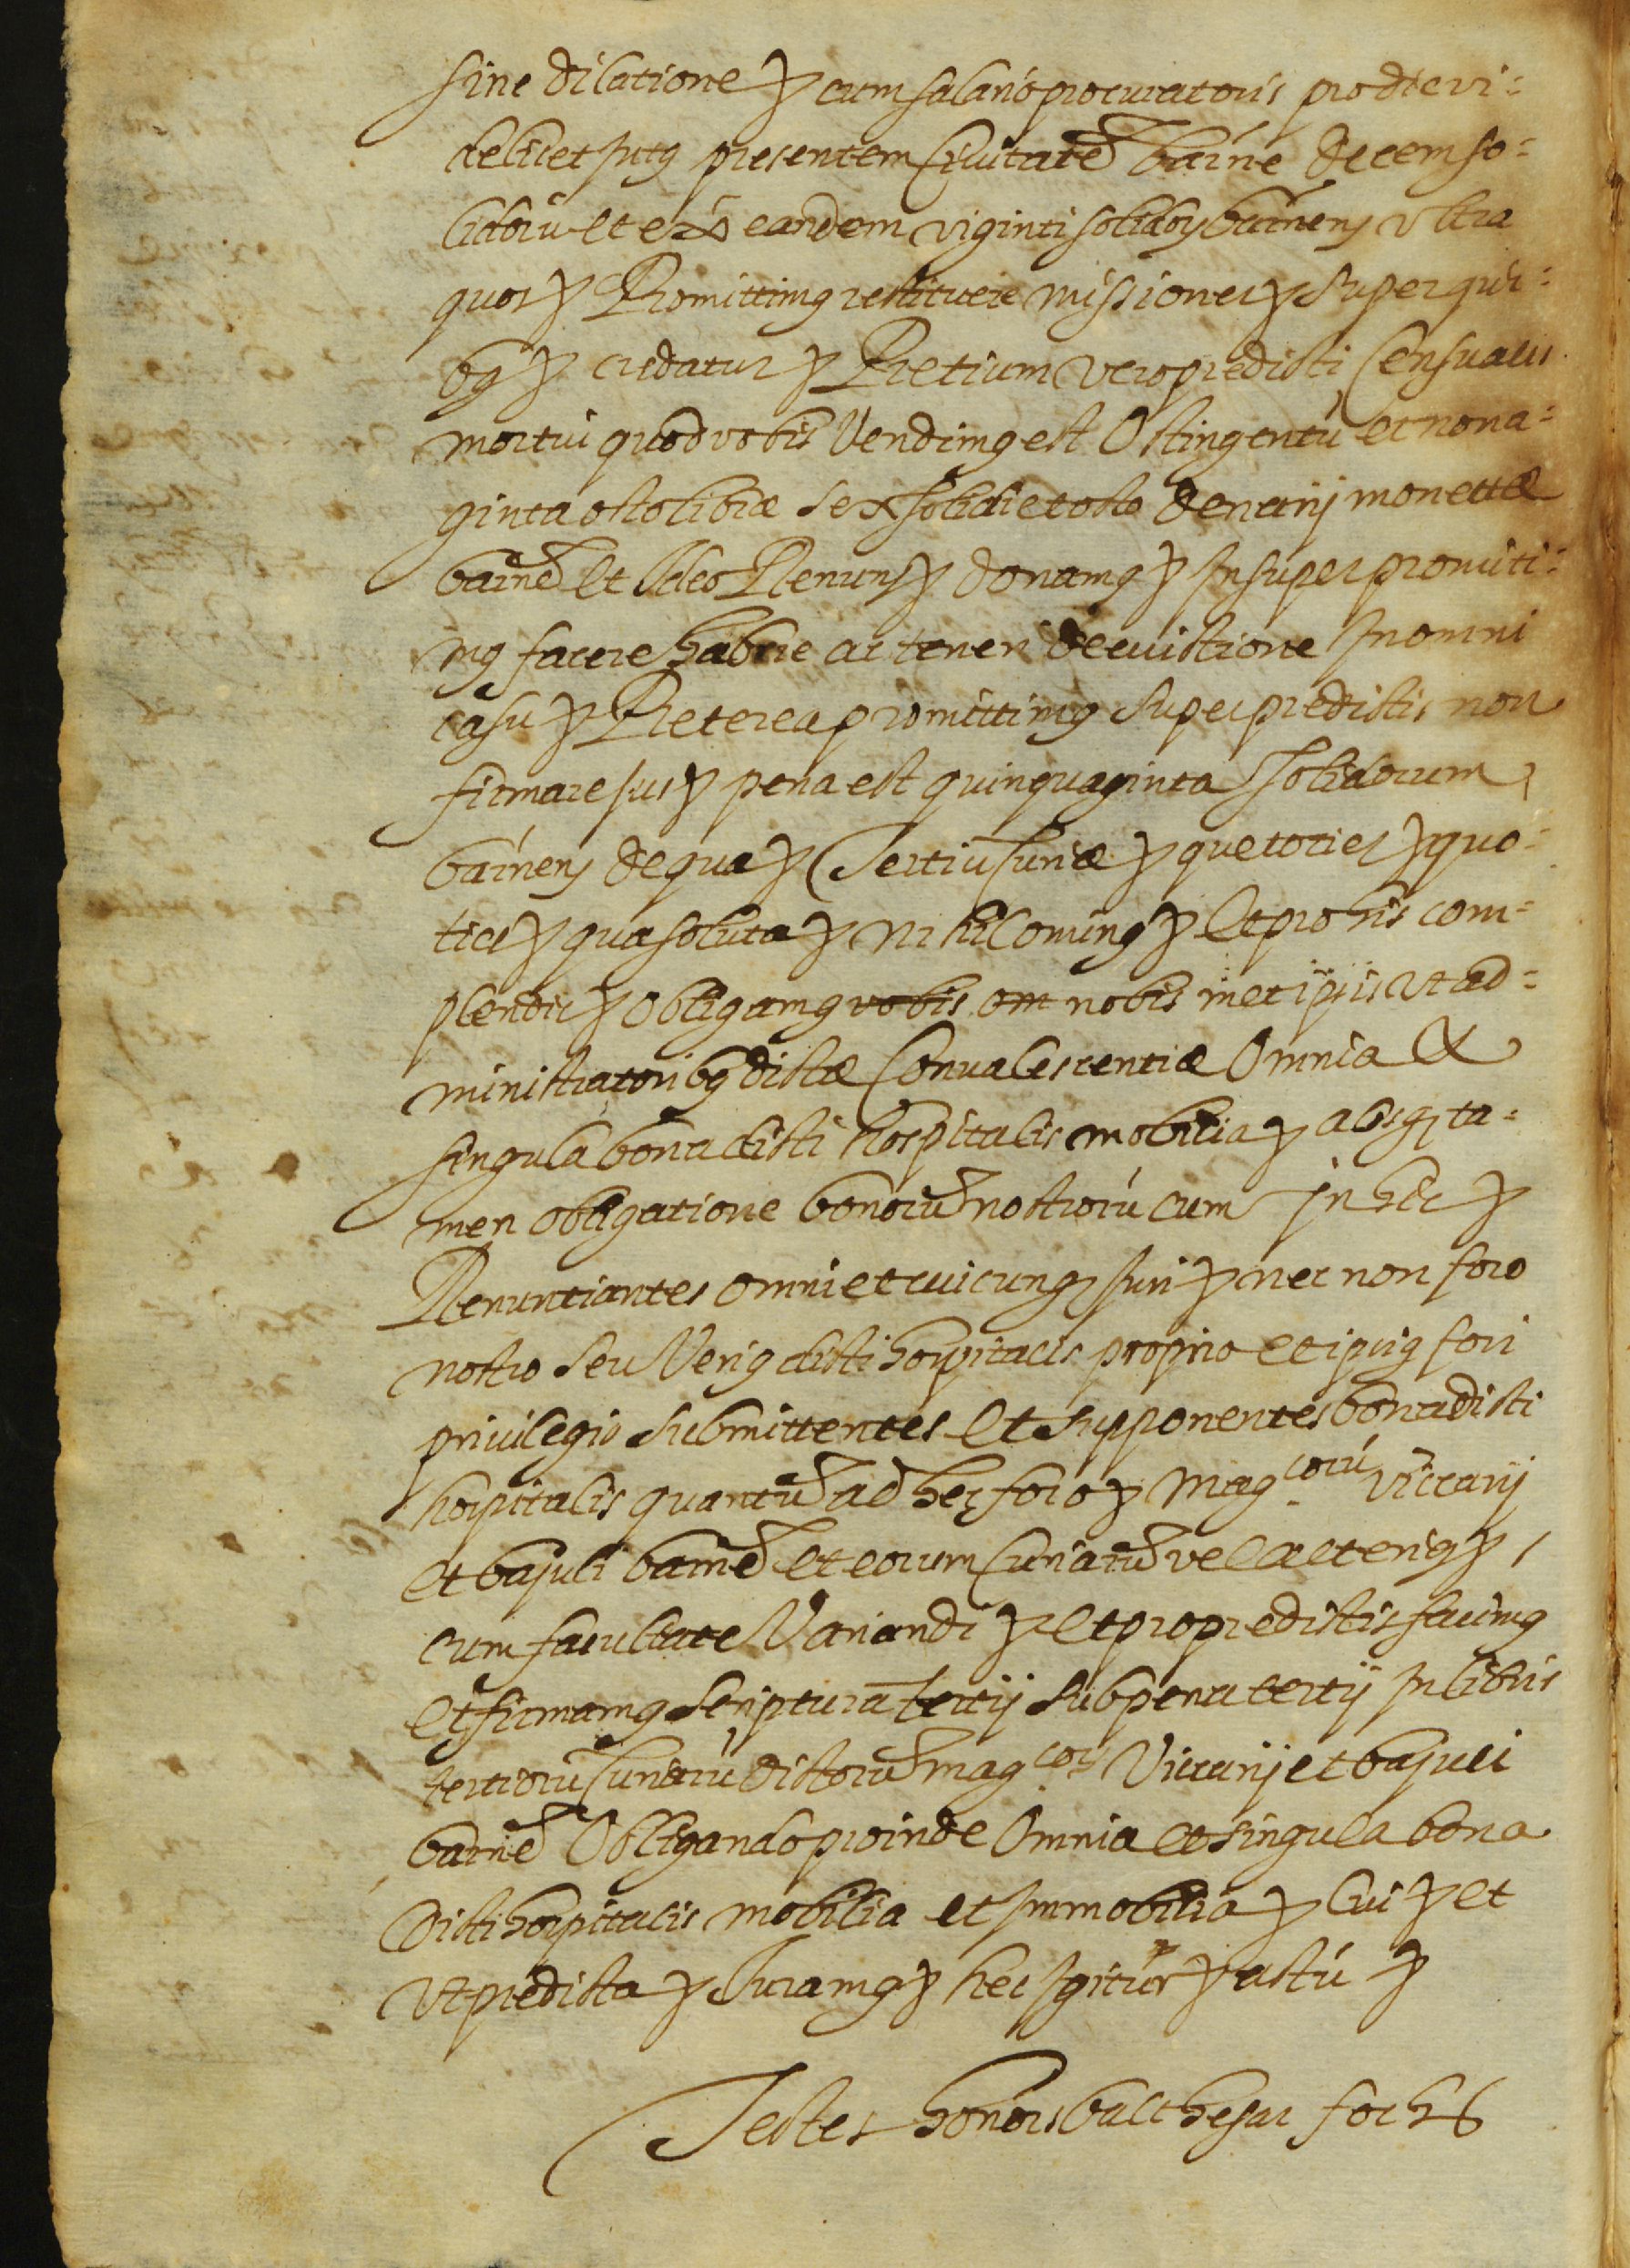 sine dilatione & cum salario procuratoris pro die vi=
delicet intus presentem Civitatē barne decem so=
lidorū et extra eandem viginti solidos barnens ultra
quos & Promittimus restituere missiones & super qui=
bus & credatur & Pretium vero predicti Censualis
mortui quod vobis Vendimus est Octingentū et nona=
ginta octo libræ sex solidi et octo denarij monettæ
barnē Et Ideo Renuns & donamus & Insuper promitti=
mus facere habere ac teneri de evictione In omni
casu & Preterea promittimus super predictis non
firmare Jus & pena est quinquaginta solidorum
barnens de qua & Tertiū Curiæ & que toties & quo=
ties & qua soluta & nihilominus & Et pro his com=
plendis & obligamus vobis om nobis metipsis ut ad=
ministratoribus dictæ Convalescentiæ Omnia &
singula bona dicti hospitalis mobilia & absq ta=
men obligatione bonorū nostrorū cum In his &
Renuntiantes omni et cuicunq Juri & nec non foro
nostro seu Verius dicti hospitalis proprio et ipsius fori
privilegio submittentes Et supponentes bona dicti
hospitalis quantū ad hec foro & Mag.corū Viccarij
et bajuli barnē et eorum Curiarū vel alterius &
cum facultate Variandi & Et pro predictis facimus
et firmamus scriptura tertij sub pena tertij In libris
tertiorū Curiarū dictorū mag.cors Viccarij et bajuli
barnē Obligando proinde Omnia et singula bona
dicti hospitalis mobilia et Immobilia & Cui & Et
ut predicta & Juramus & hec Igitur & actū &
Testes honors balthesar fochs